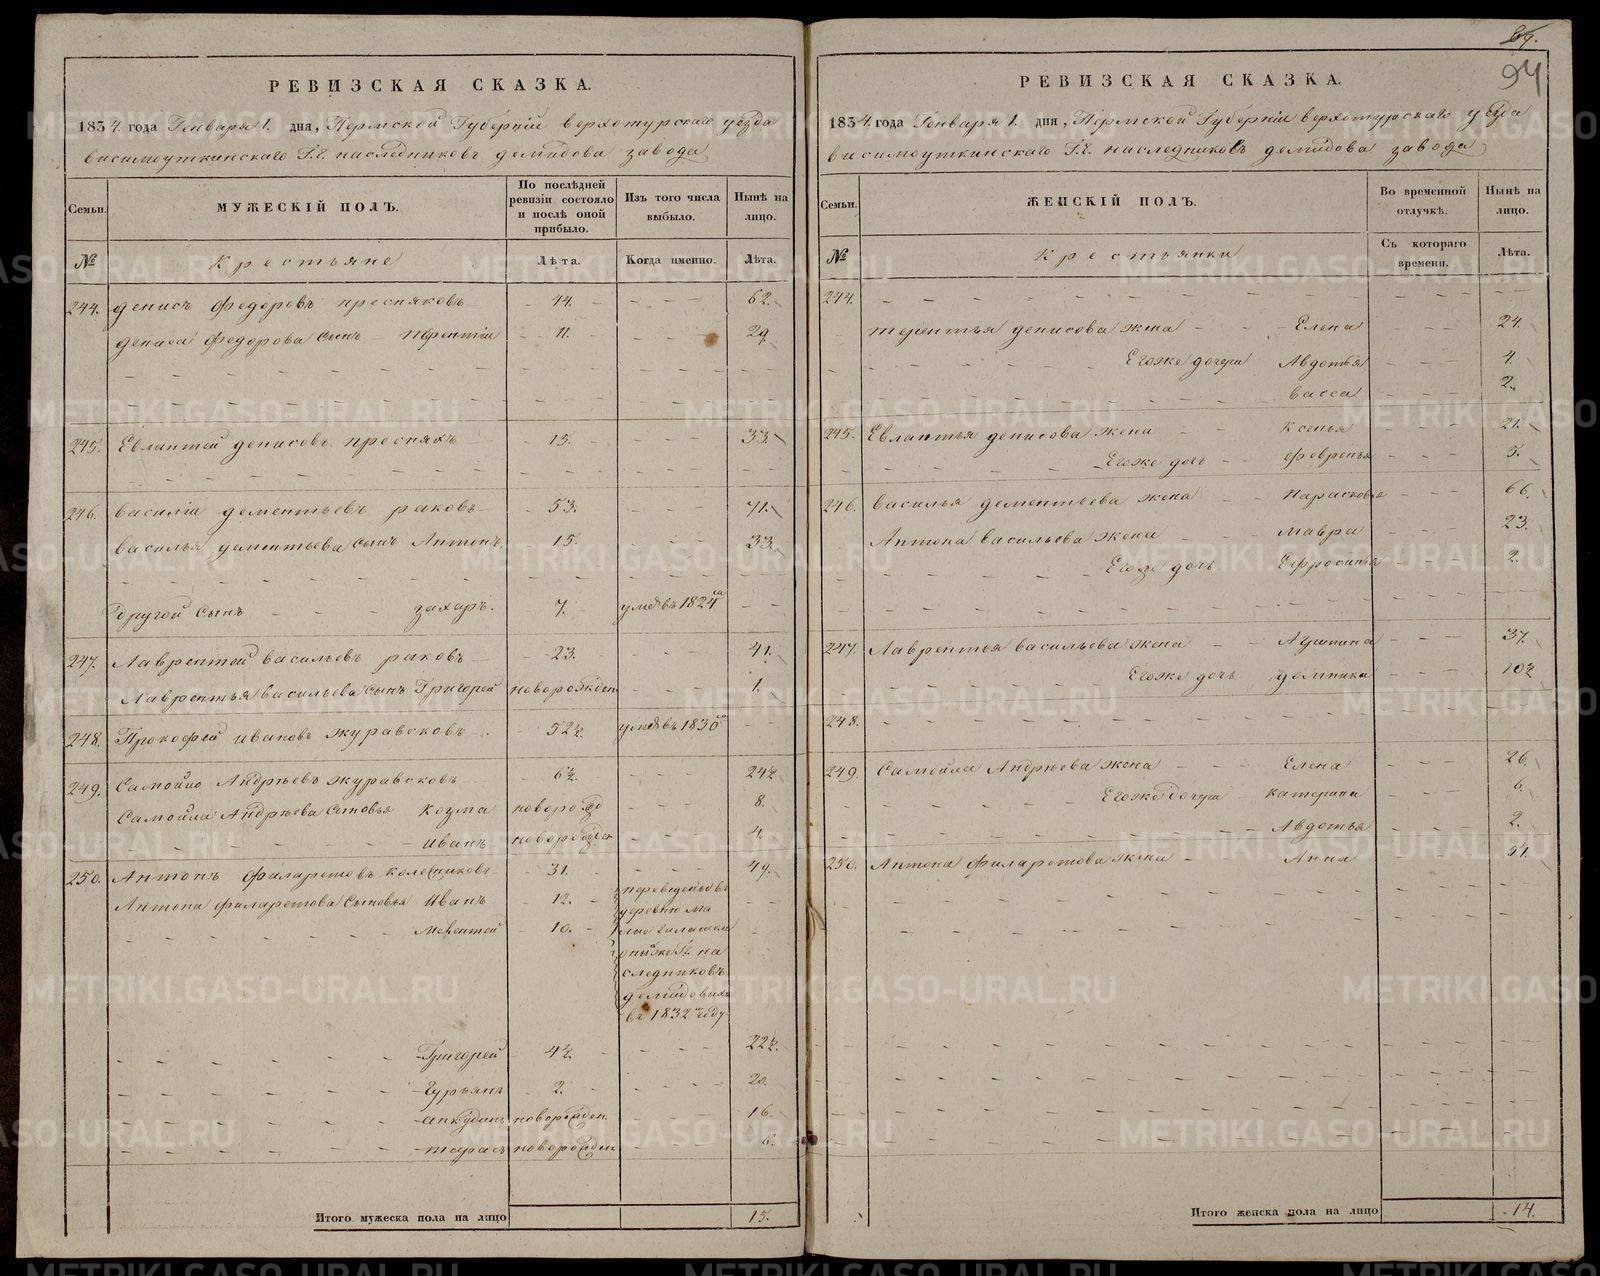 РЕВИЗСКАЯ СКАЗКА.
1834. года Генваря 1. дня, Пермской Губерніи верхотурскаго уезда
висимоуткинскаго наследниковъ демидова завода
Семьи.
МУЖЕСКІЙ ПОЛЪ.
По послѣдней ревизіи состояло и послѣ оной прибыло.
Изъ того числа выбыло.
Нынѣ на лицо.
№
Крестьяне
Лѣта.
Когда именно.
Лѣта.
244. денисъ федоровъ пресняковъ 44. 62.
дениса федорова сынъ терентіи 11. 29.
245. Евлантей денисовъ 15. 33.
246. василіи дементьевъ раковъ 53. 71.
василья дементьева сынъ Антонъ. 15. 33.
другой сынъ захаръ. 7. 1824
247. Лаврентей васильевъ раковъ 23. 41.
Лаврентья васильева сынъ Григорей новорожден 1.
248. Прокофей ивановъ журавсковъ 52½ 1830
249. Самойло Андрѣевъ журавсковъ 6½. 24½
Самойла Андрѣева сыновья Козма новорожд 8.
Иванъ новорожден 4.
250. Антонъ филаретовъ колесниковъ 31. 49.
Антона филаретова сыновья Иванъ 12. переведены въ
деревню ма
10.
на
следниковъ
демидовыхъ
въ 1832 году
Григорей 4½. 22½.
Гурьянъ 2. 20.
анкудинъ новорожден. 16.
тарасъ новорожден. 6.
Итого мужеска пола на лицо 15.
94
РЕВИЗСКАЯ СКАЗКА.
1834. года Генваря 1. дня, Пермской Губерніи верхотурскаго уезда
висимоуткинскаго наследниковъ демидова завода
Семьи.
ЖЕНСКІЙ ПОЛЪ.
Во временной отлучкѣ.
Нынѣ на лицо.
№
Крестьянки
Съ котораго времени.
Лѣта.
244.
терентья денисова жена Елена 24.
Егоже дочери Авдотья 4.
васса 2.
245. Евлантья денисова жена Ксенья 21.
Егоже дочь февронья 5.
246. василья дементьева жена Парасковья 66.
Антона васильева жена мавра 23.
Егоже дочь Ефросинья 2.
247. Лаврентья васильева жена Агрипина 37.
Егоже дочь домника 10½
248.
249. Самойла Андрѣева жена Елена 26.
Егоже дочери катерина 6.
Авдотья 2.
250. Антона филаретова жена Анна 51.
Итого женска пола на лицо 14.
METRIKI.GASO-URAL.RU